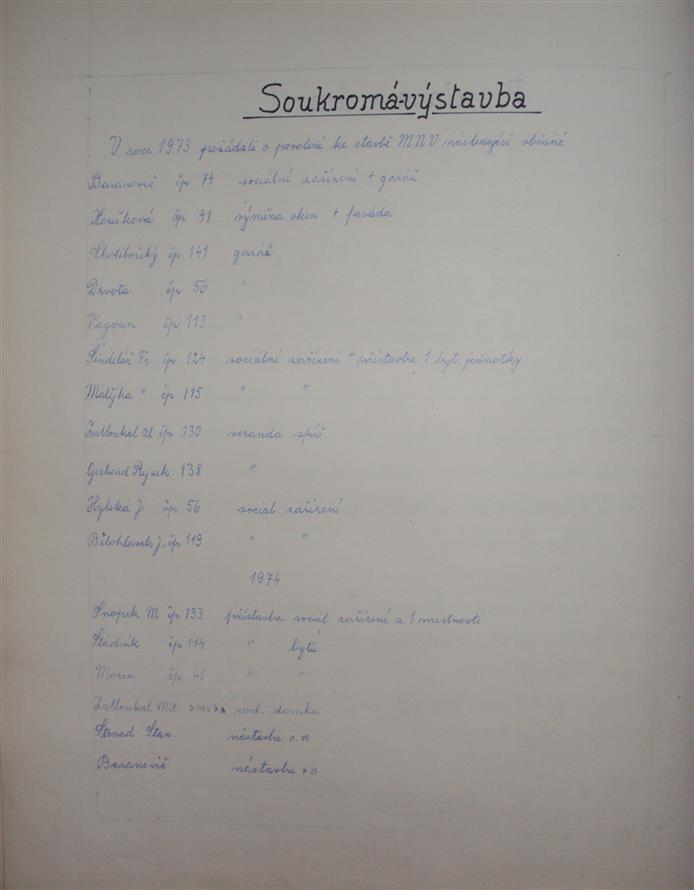 Soukromá výstavba
V roce 1973 požádali o povolení ke stavbě MNV následující občané
Baranovič čp 74 sociální zařízení + garáž
Houšková čp 91 výměna oken + fasáda
Chotibořský čp. 141 garáž
Drvota čp 56 "
Vagoun čp 113 "
Šindelář Fr. čp 124 sociální zařízení + přístavba 1 byt. jednotky
Matyka " čp 115 " "
Zatloukal čp 130 veranda spíž
Gerhard Rysek 138 "
Hylská J čp 56 sociál zařízení
Bělohlavek J. čp 119 " "
1974
Snopek M čp 133 přístavba sociál zařízení a 1 místnosti
Stádník čp 114 " bytů
čp 45 " "
Zatloukal Mil stavba rod. domku
nástavbu
Baranovič nástavbu